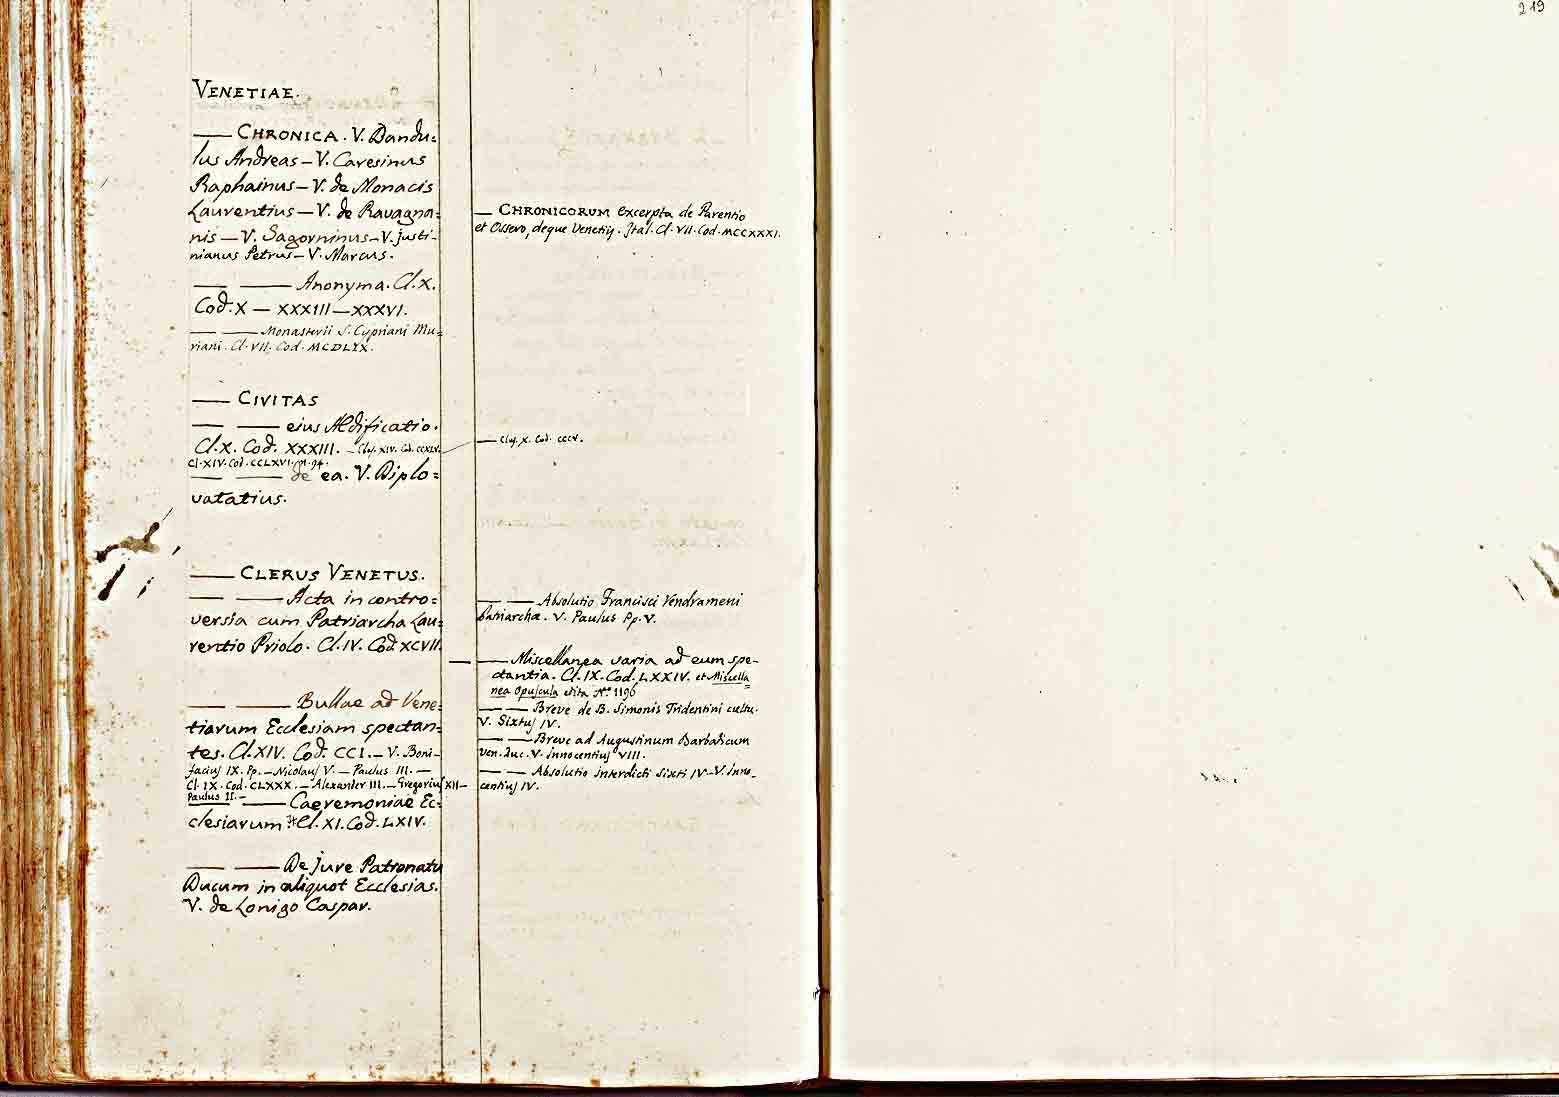 219
VENETIAE.
— CHRONICA. V. Dandu=
lus Andreas — V. Caresinus
Raphainus — V. de Monacis
Laurentius — V. de Ravagna=
nis — V. Sagorninus — V. Justi-
nianus Petrus — V. Marcus.
— — Anonyma. Cl. X.
Cod. X — XXXIII — XXXVI.
— — Monasterii S. Cypriani Mu=
riani. Cl. VII. Cod. MCDLIX.
— CIVITAS
— — eius Ædificatio.
Cl. X. Cod. XXXIII. — Clas. XIV. Cod. CCXLV.
Cl. XIV. Cod. CCLXVI. 94.
— — de ea. V. Diplo=
vatatius.
— CLERUS VENETUS.
— — Acta in contro=
versia cum Patriarcha Lau=
rentio Priolo. Cl. IV. Cod. XCVII.
— — Bullae ad Vene=
tiarum Ecclesiam spectan=
tes. Cl. XIV. Cod. CCI. — V. Boni-
facius IX. Pp. — Nicolaus V. — Paulus III. —
Cl. IX. Cod. CLXXX. — Alexander III. — Gregorius XII —
Paulus II. —
— — Caeremoniae Ec=
clesiarum Cl. XI. Cod. LXIV.
— — De jure Patronatu
Ducum in aliquot Ecclesias.
V. de Lonigo Caspar.
— CHRONICORUM excerpta de Parentio
et Ossero, deque Venetiis. Ital. Cl. VII. Cod. MCCXXXI.
— Clas. X. Cod. CCCV.
— — Absolutio Francisci Vendrameni
Patriarchæ. V. Paulus Pp. V.
— — Miscellanea varia ad eum spe-
ctantia. Cl. IX. Cod. LXXIV. et Miscella=
nea Opuscula edita N.º 1196
— — Breve de B. Simonis Tridentini cultu.
V. Sixtus IV.
— — Breve ad Augustinum Barbadicum
Ven. Duc. V. Innocentius VIII.
— — Absolutio interdicti Sixti IV — V. Inno-
centius IV.